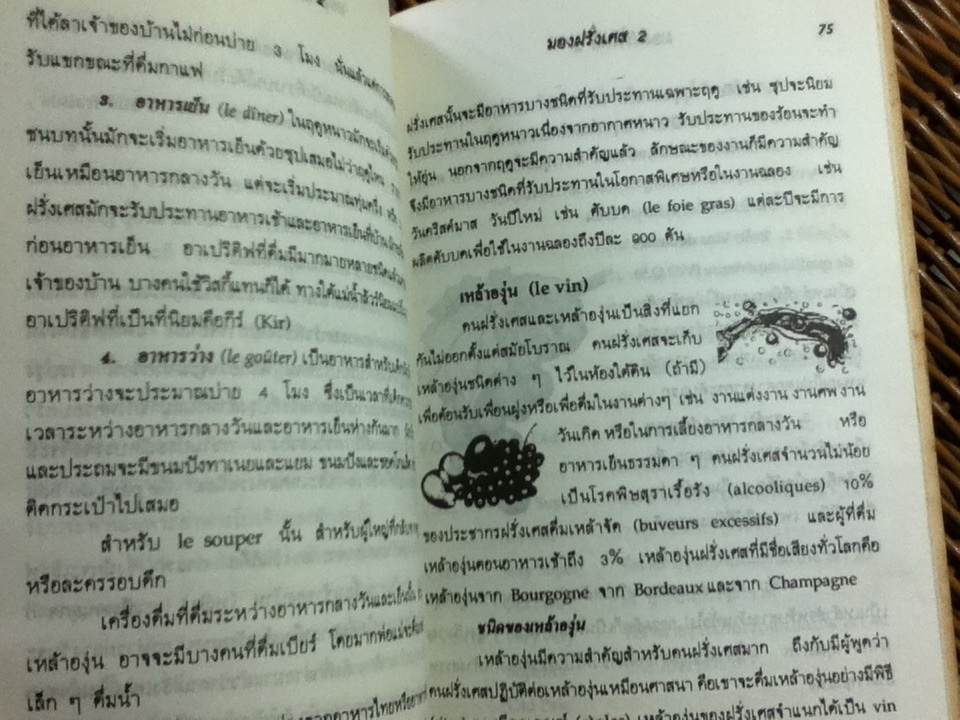 ที่ได้ลาเจ้าของบ้านไม่ก่อนบ่าย 3 โมง นั่นแล้วแต่
รับแขกขณะที่ดื่มกาแฟ
3. อาหารเย็น (le dîner) ในฤดูหนาวมักจะ
ชนบทนั้นมักจะเริ่มอาหารเย็นด้วยซุปเสมอไม่ว่าฤดูไหน
เย็นเหมือนอาหารกลางวัน แต่จะเริ่มประมาณทุ่มครึ่ง
ฝรั่งเศสมักจะรับประทานอาหารเช้าและอาหารเย็นที่บ้าน
ก่อนอาหารเย็น อาเปริติฟที่ดื่มมีมากมายหลายชนิด
เจ้าของบ้าน บางคนใช้วิสกี้แทนก็ได้ ทางใต้แม่น้ำลัวร์นิยม
อาเปริติฟที่เป็นที่นิยมคือกีร์ (Kir)
4. อาหารว่าง (le goûter) เป็นอาหารสำหรับเด็ก
อาหารว่างจะประมาณบ่าย 4 โมง ซึ่งเป็นเวลาที่เด็ก
เวลาระหว่างอาหารกลางวันและอาหารเย็นห่างกันมาก
และประถมจะมีขนมปังทาเนยและแยม ขนมปังและช็อคโกแล็ต
ติดกระเป๋าไปเสมอ
สำหรับ le souper นั้น สำหรับผู้ใหญ่ที่กลับจาก
หรือละครรอบดึก
เครื่องดื่มที่ดื่มระหว่างอาหารกลางวันและเย็นนั้น
เหล้าองุ่น อาจจะมีบางคนที่ดื่มเบียร์ โดยมากพ่อแม่จะ
เล็ก ๆ ดื่มน้ำ
จากอาหารไทยหรืออาหาร
มองฝรั่งเศส 2 75
ฝรั่งเศสนั้นจะมีอาหารบางชนิดที่รับประทานเฉพาะฤดู เช่น ซุปจะนิยม
รับประทานในฤดูหนาวเนื่องจากอากาศหนาว รับประทานของร้อนจะทำ
ให้อุ่น นอกจากฤดูจะมีความสำคัญแล้ว ลักษณะของงานก็มีความสำคัญ
จึงมีอาหารบางชนิดที่รับประทานในโอกาสพิเศษหรือในงานฉลอง เช่น
วันคริสต์มาส วันปีใหม่ เช่น ตับบด (le foie gras) แต่ละปีจะมีการ
ผลิตตับบดเพื่อใช้ในงานฉลองถึงปีละ 900 ตัน
เหล้าองุ่น (le vin)
คนฝรั่งเศสและเหล้าองุ่นเป็นสิ่งที่แยก
กันไม่ออกตั้งแต่สมัยโบราณ คนฝรั่งเศสจะเก็บ
เหล้าองุ่นชนิดต่าง ๆ ไว้ในห้องใต้ดิน (ถ้ามี)
เพื่อต้อนรับเพื่อนฝูงหรือเพื่อดื่มในงานต่างๆ เช่น งานแต่งงาน งานศพ งาน
วันเกิด หรือในการเลี้ยงอาหารกลางวัน หรือ
อาหารเย็นธรรมดา ๆ คนฝรั่งเศสจำนวนไม่น้อย
เป็นโรคพิษสุราเรื้อรัง (alcooliques) 10%
ของประชากรฝรั่งเศสดื่มเหล้าจัด (buveurs excessifs) และผู้ที่ดื่ม
เหล้าองุ่นตอนอาหารเช้าถึง 3% เหล้าองุ่นฝรั่งเศสที่มีชื่อเสียงทั่วโลกคือ
เหล้าองุ่นจาก Bourgogne จาก Bordeaux และจาก Champagne
ชนิดของเหล้าองุ่น
เหล้าองุ่นมีความสำคัญสำหรับคนฝรั่งเศสมาก ถึงกับมีผู้พูดว่า
คนฝรั่งเศสปฏิบัติต่อเหล้าองุ่นเหมือนศาสนา คือเขาจะดื่มเหล้าองุ่นอย่างมีพิธี
เหล้าองุ่นของฝรั่งเศสจำแนกได้เป็น vin